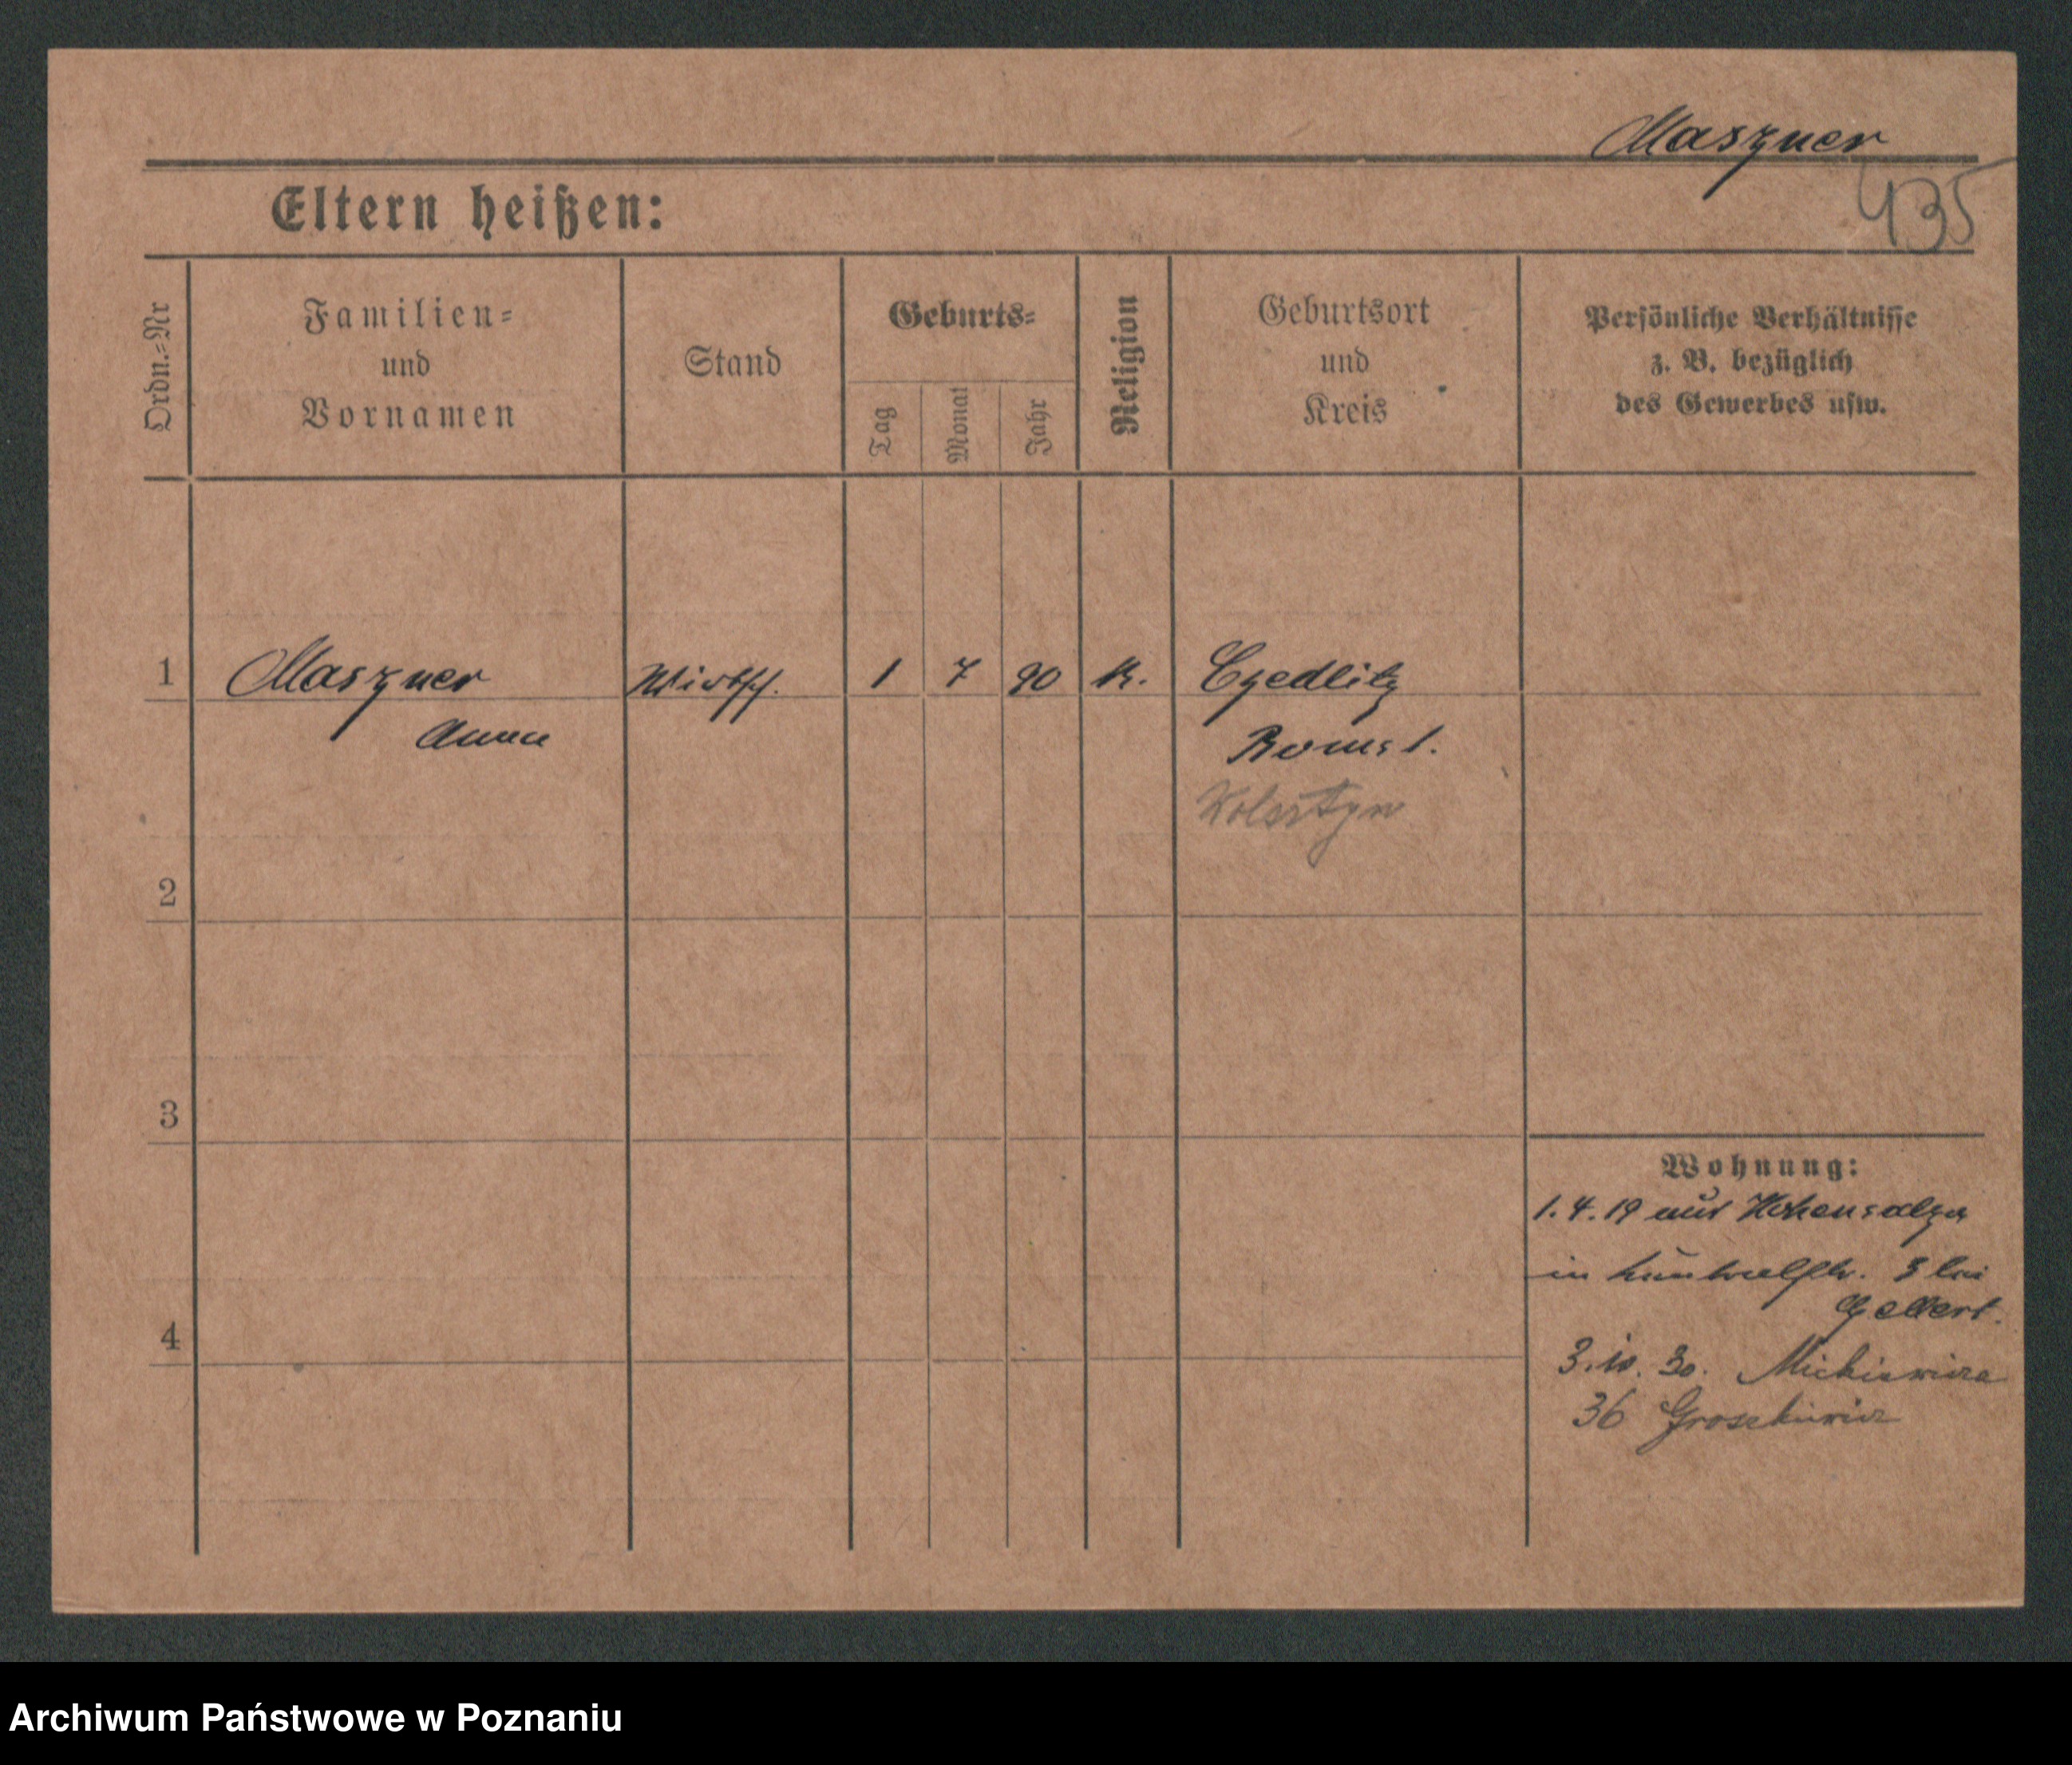 Maszner
435
Eltern heißen:
Ordn.=Nr
Familien=
und
Vornamen
Stand
Geburts=
Tag
Monat
Jahr
Religion
Geburtsort
und
Kreis
Persönliche Verhältnisse
z. B. bezüglich
des Gewerbes usw.
1 Maszner Wirtsch. 1 7 90 k. Czedlitz
Anna Bomst.
2
3
4
Wohnung:
1.4.19 aus Hohensalza
in 3 bei
Gellert.
3.10.30. Mickiewicza
36
Archiwum Państwowe w Poznaniu